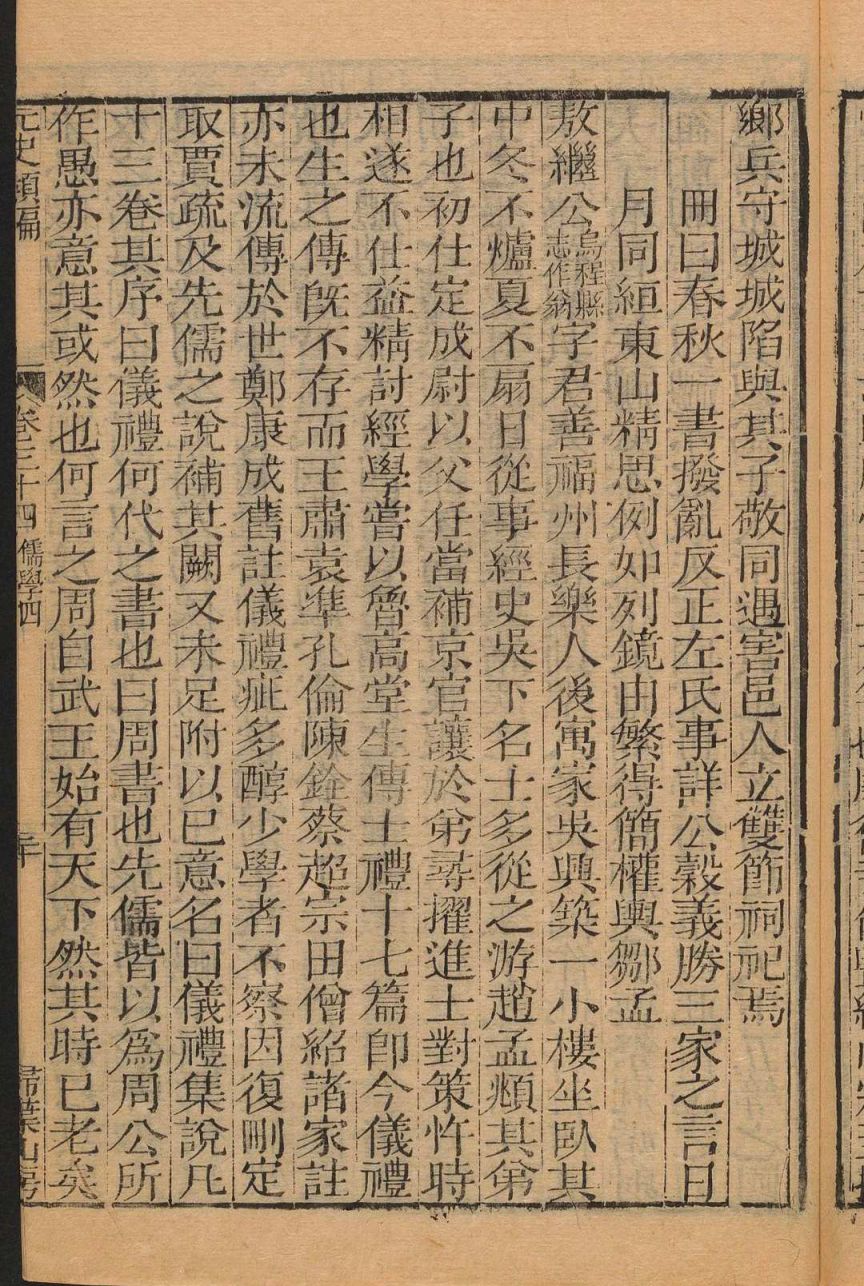 鄉兵守城城陷與其子敬同遇害邑人立雙節祠祀焉
冊曰春秋一書撥亂反正左氏事詳公穀義勝三家之言日
月同絙東山精思例如列鏡由繁得簡權輿鄒孟
敖繼公烏程縣志作翁字君善福州長樂人後寓家吳興築一小樓坐臥其
中冬不爐夏不扇日從事經史吳下名士多從之游趙孟頫其弟
子也初仕定成尉以父任當補京官讓於弟尋擢進士對策忤時
相遂不仕益精討經學嘗以魯高堂生傳士禮十七篇卽今儀禮
也生之傳旣不存而王肅袁準孔倫陳銓蔡超宗田僧紹諸家註
亦未流傳於世鄭康成舊註儀禮疵多醇少學者不察因復刪定
取賈疏及先儒之說補其闕又未足附以已意名曰儀禮集說凡
十三卷其序曰儀禮何代之書也曰周書也先儒皆以爲周公所
作愚亦意其或然也何言之周自武王始有天下然其時已老矣
元史類編 卷三十四 儒學四 三十 掃葉山房